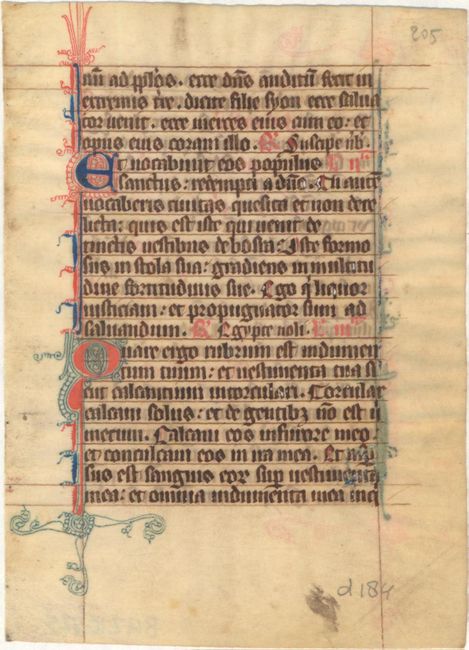 205
ad pplos. ecce dns auditu fecit in
extremis tre. dicite filie syon ecce salua
tor uenit. ecce merces eius cum eo: et
opus eius coram illo. R Suscipe
Et uocabunt eos populus
sanctus: redempti a dno. Tu aute
uocaberis ciuitas quesita et non dere
licta: quis est iste qui uenit de
tinctis uestibus de bosra: Iste formo
sus in stola sua: gradiens in multitu
dine fortitudinis sue. Ego q loquor
iusticiam: et propugnator sum ad
saluandum. R Egypte noli.
Quare ergo rubrum est indumen
tum tuum: et uestimenta tua si
cut calcantium in torculari. Torcular
calcaui solus: et de gentibz no est
mecum. Calcaui eos in furore meo
et conculcaui eos in ira mea. Et asp
sus est sanguis eor sup uestimenta
mea: et omnia indumenta mea inq
d 184